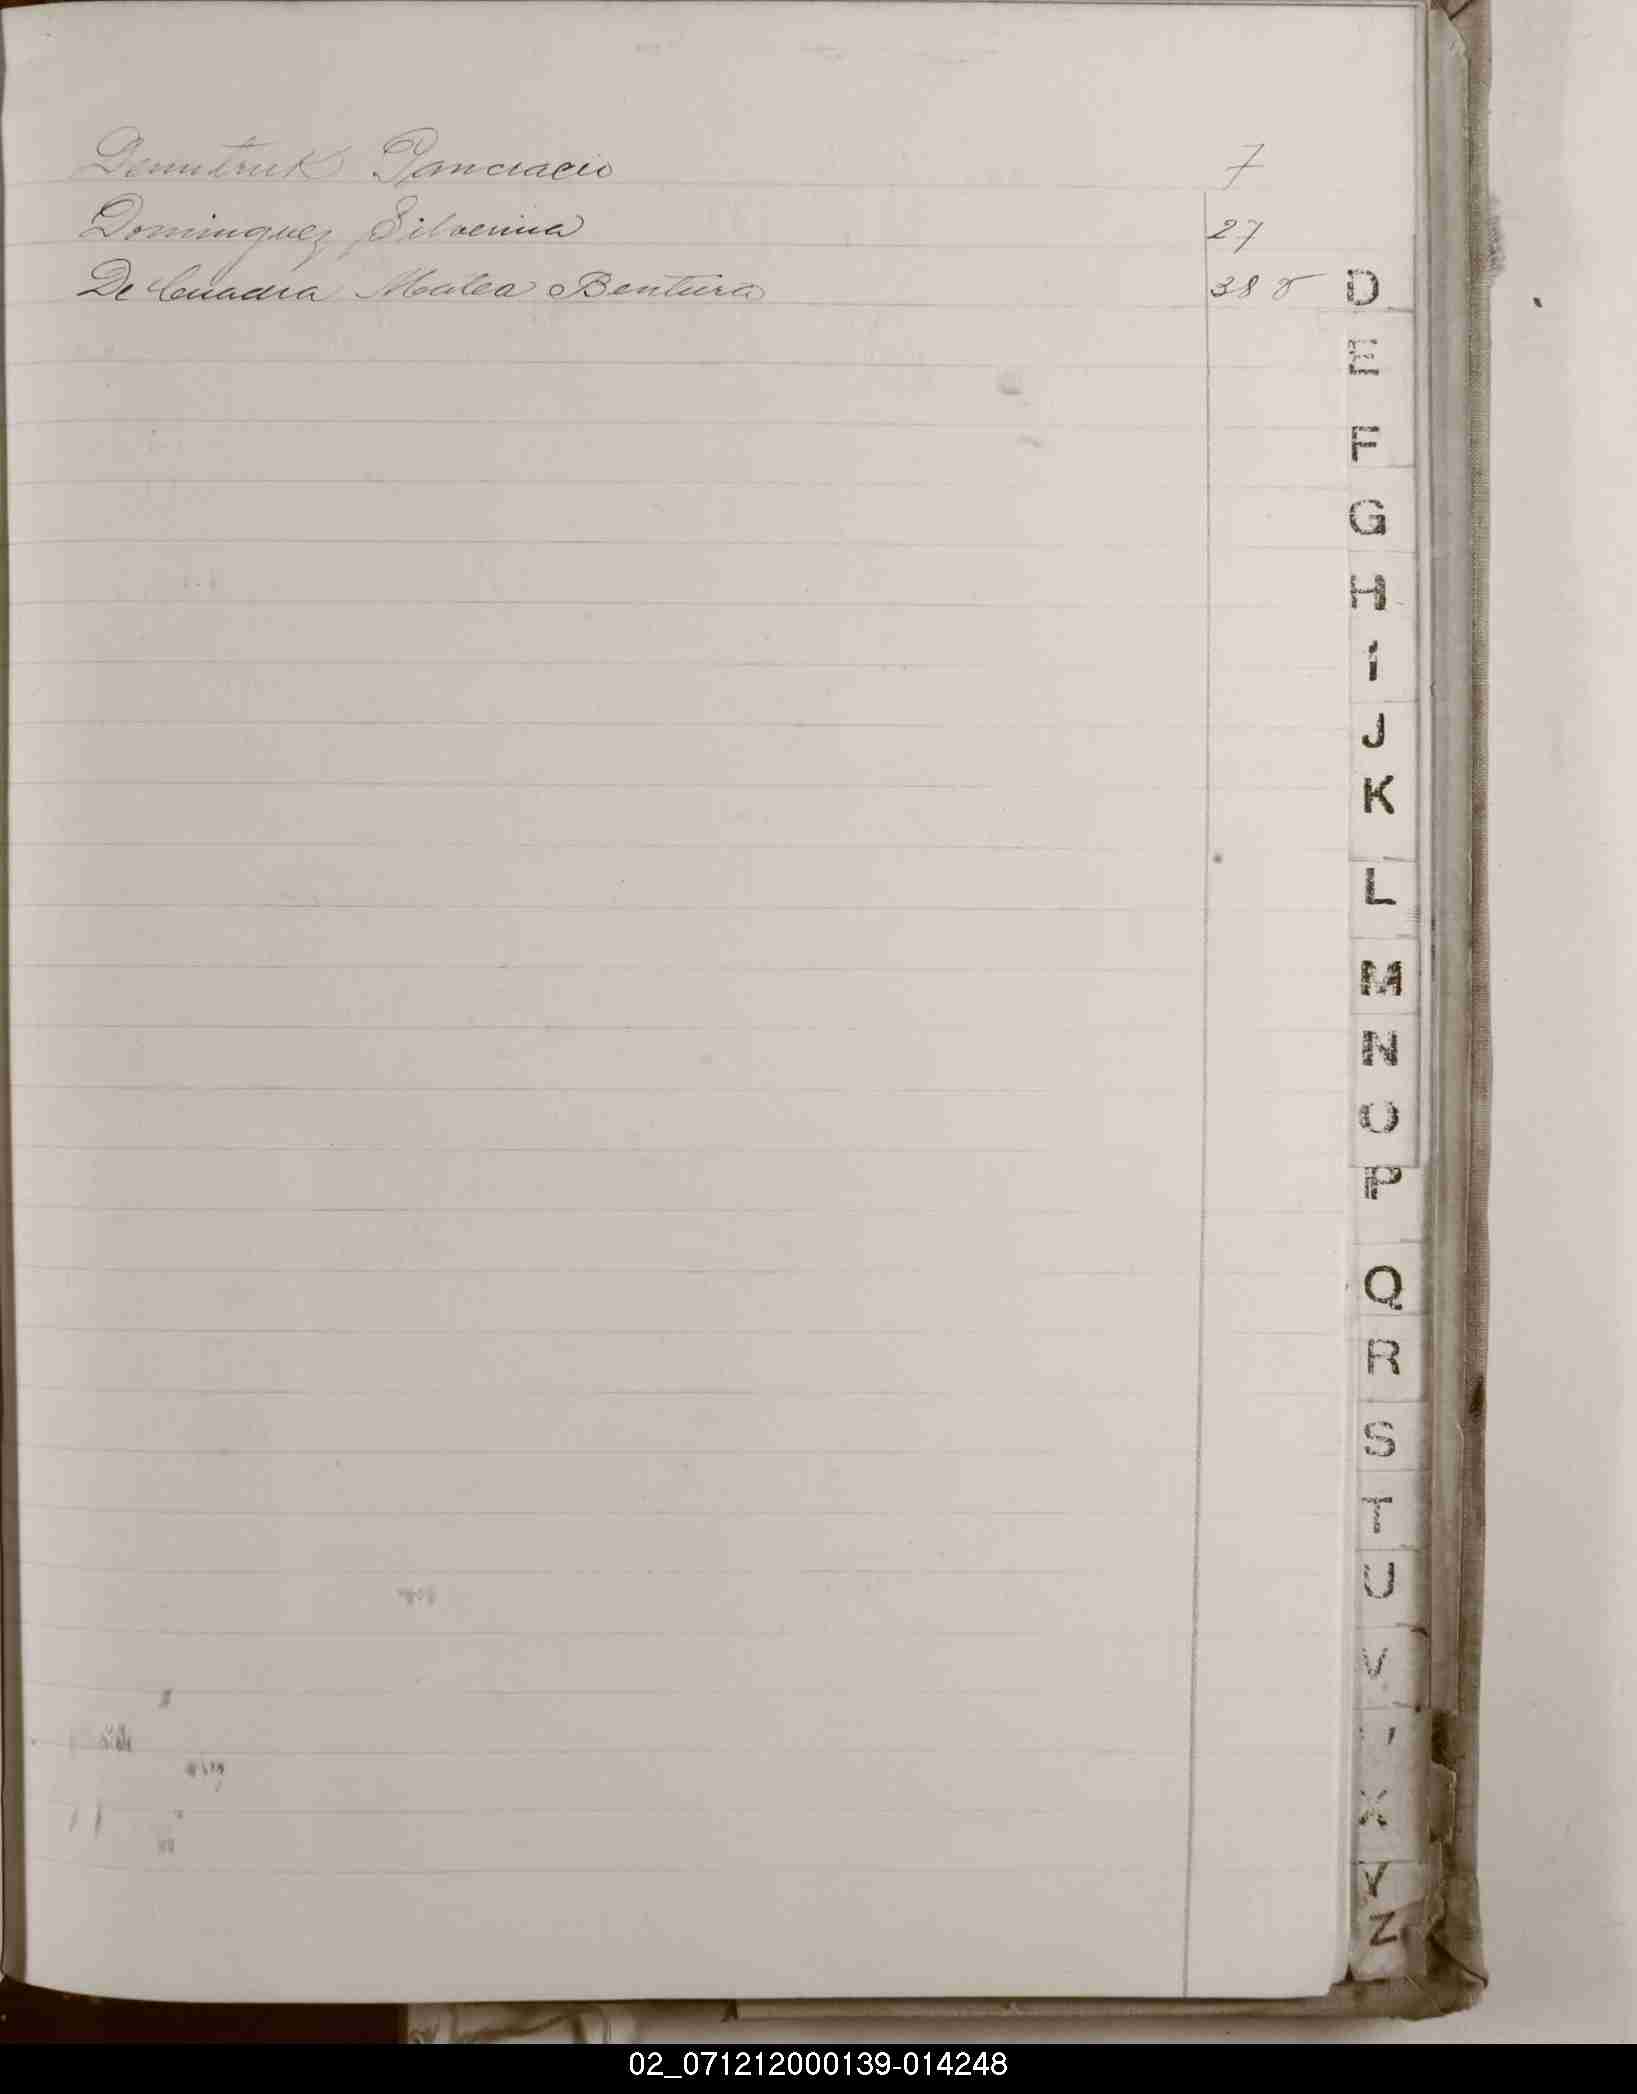 Demitruk Pancracio 7
Dominguez Silverina 27
De Cuadra Matea Bentura 38
D
E
F
G
H
I
J
K
L
M
N
O
P
Q
R
S
T
U
V
X
Y
Z
02_071212000139-014248